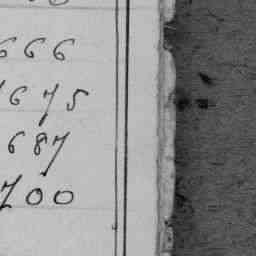 666
1675
687
700